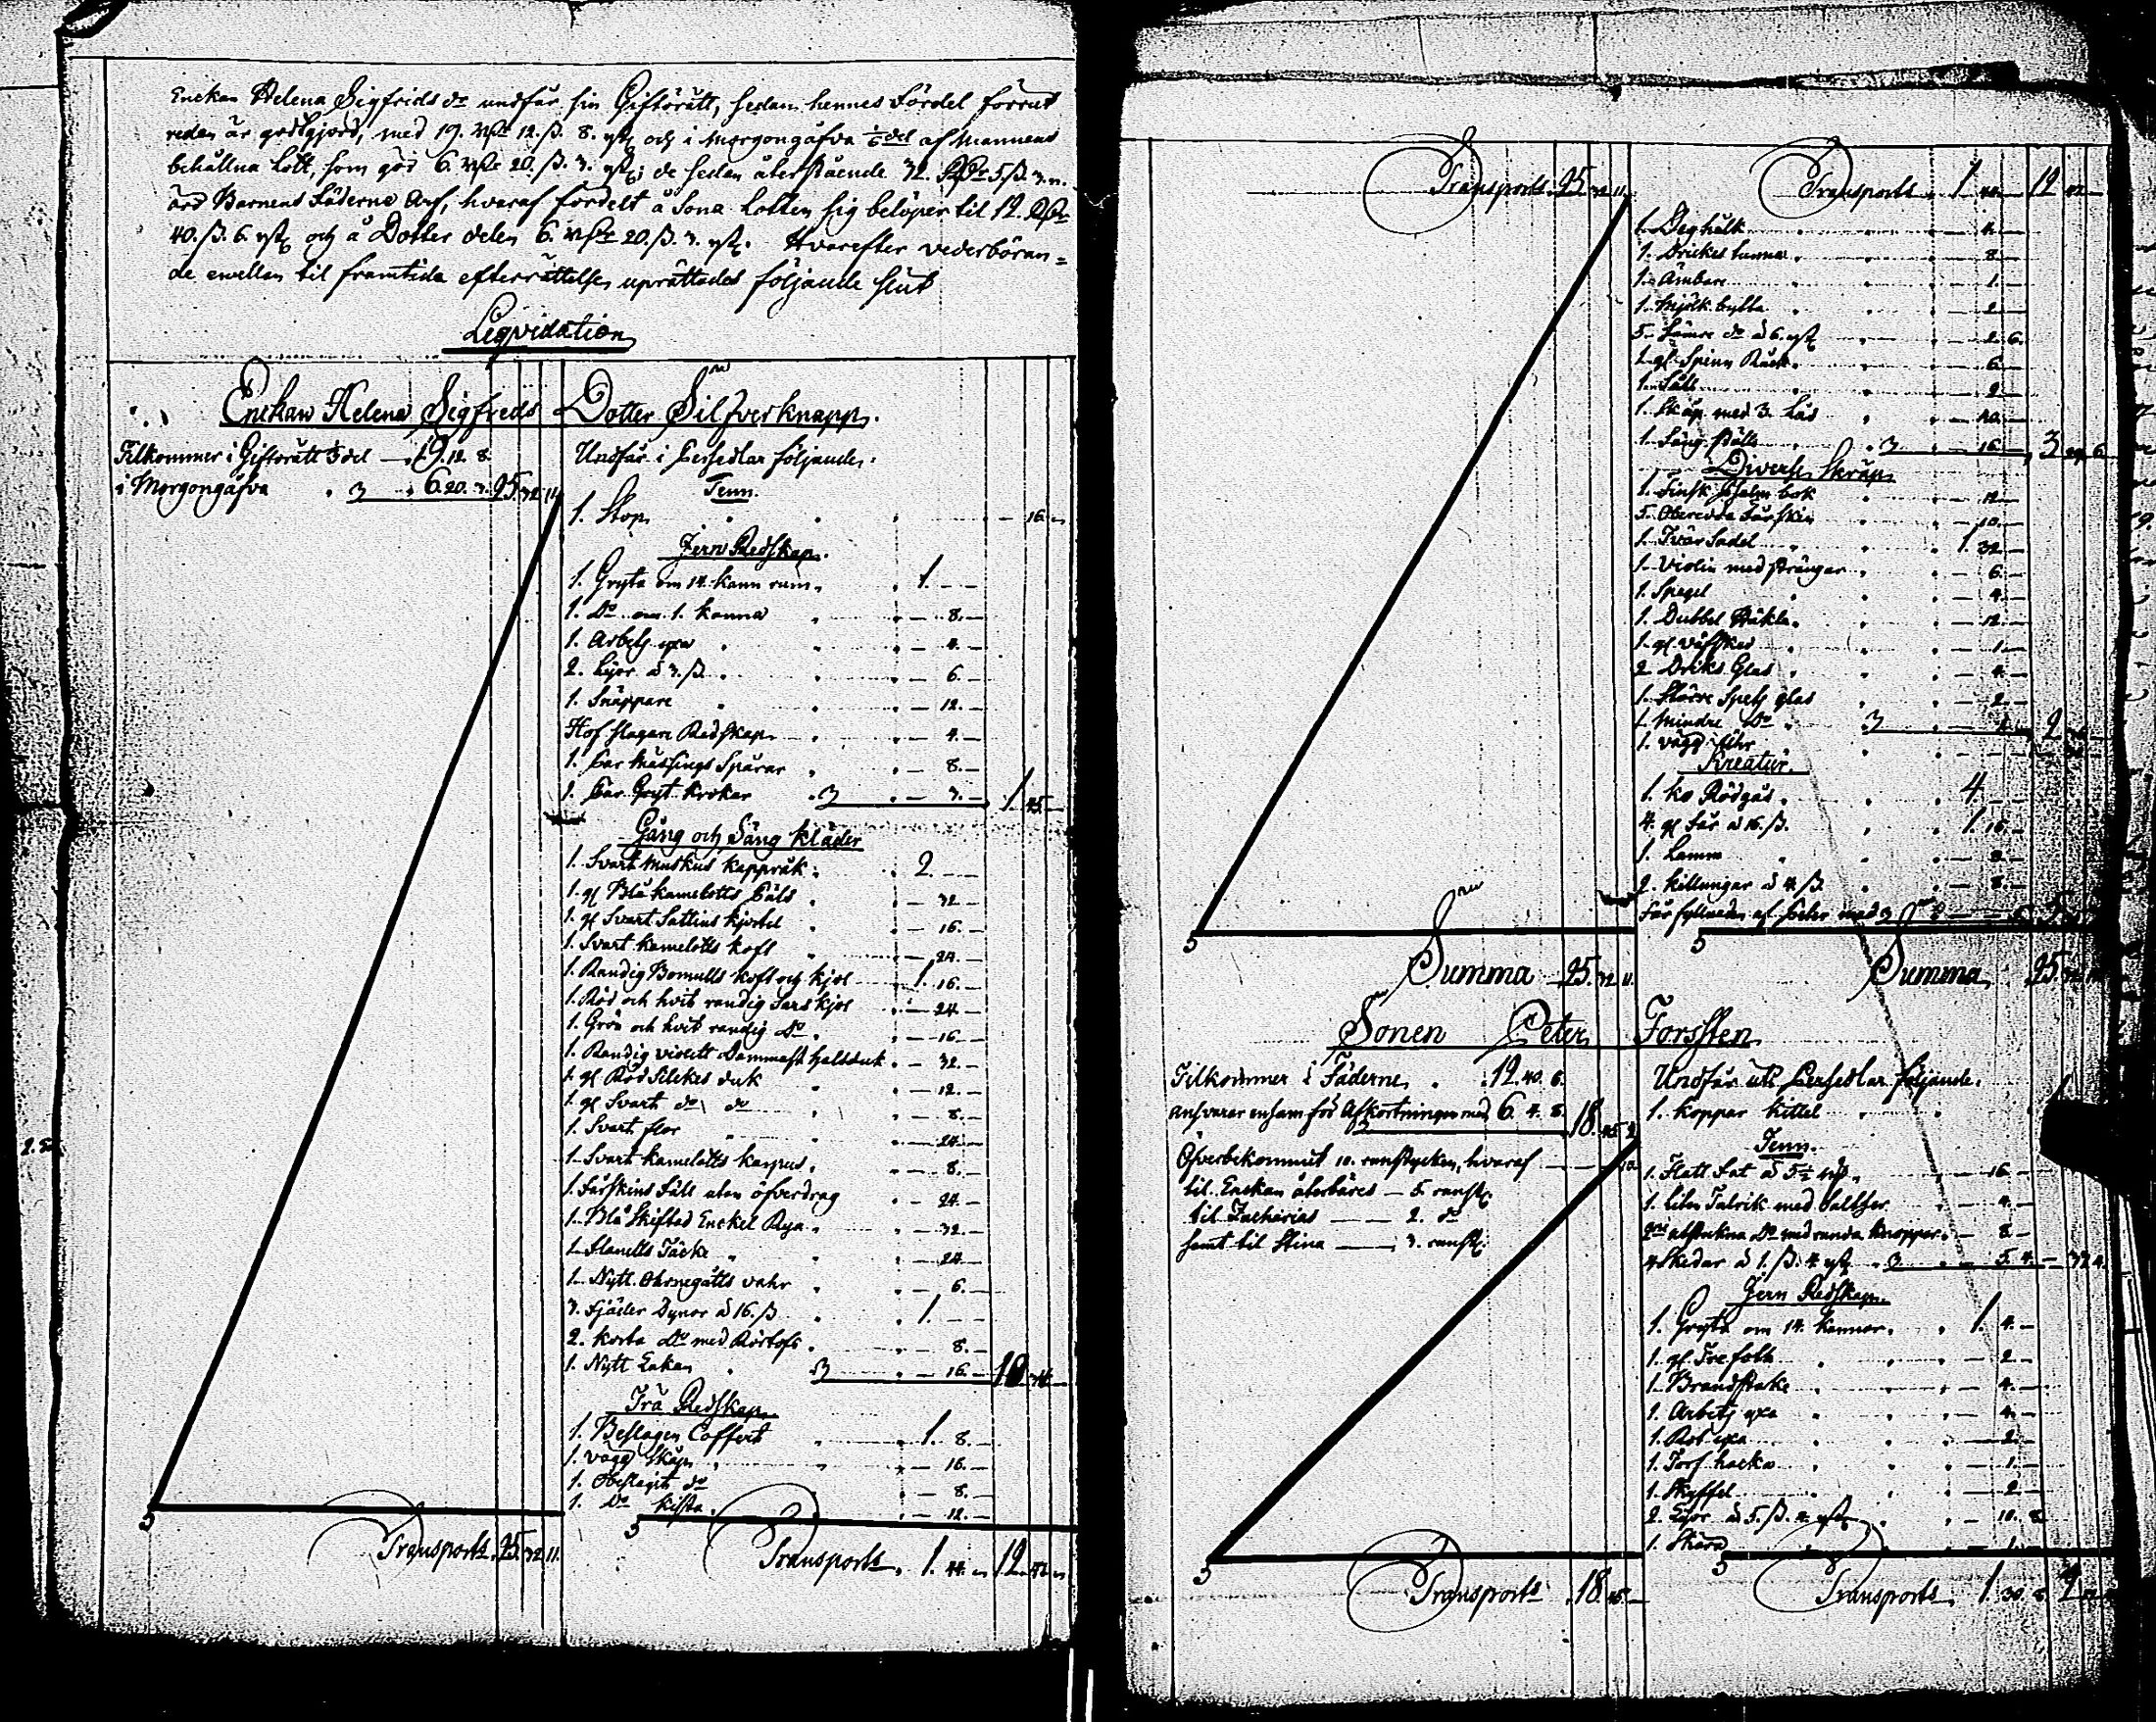 Enckan Helena Sigfrids dr undfår sin Giftorätt, sedan hennes Fördel förrut
redan är godtgjord, med 19. Rdr 12. ß. 8. rst och i Morgongåfva 1/6 del af Mannens
behållna Lott, som gör 6. Rdr 20. ß. 3. rst; de sedan återstående 32. Rdr 5 ß. 3. r.
äro Barnens Fäderne Arf, hvaraf fördelt å Sona Lotten sig belöper til 12. Rdr
40. ß. 6. rst och å Dotter delen 6. Rdr 20. ß. 3. rst. Hvarefter vederböran=
de emellan til framtida efterrättelse uprättades följande slut
Leqvidation
Enckan Helena Sigfreds Dotter Silfverknapp.
Tilkommer i Giftorätt 1/3 del — 19. 12. 8.
i Morgongåfva 6. 20. 3. 25. 32. 11
Transport. 25. 32. 11.
Undfår i Persedlar följande.
Tenn.
1. Stop 16.
Jern Redskap.
1. Gryta om 14. kann rum. 1. —
1. Do om 1. kanna — 8. —
1. Arbets yxa — 4. —
2. Lijor à 3. ß. — 6. —
1. Snäppare — 12. —
Hof slagare Redskap — 4. —
1. Par Mässings Sparar — 8. —
1. Par Gryt krokar — 3. — 1. 45
Gång och Säng kläder
1. Svart Muskus kappråk. 2. —
1. gl Blå kamelotts Päls — 32
1. gl Svart Sattins kjortel — 16. —
1. Svart kamelotts koft — 24. —
1. Randig Bomulls koft och kjol 1. 16. —
1. Röd och hvit randig Sars kjol — 24. —
1. Grön och hvit randig Do — 16. —
1. Randig violett Dammast halsduk — 32. —
1. gl Röd Silckes duk — 12. —
1. gl Svart do do — 8. —
1. Svart flor — 24. —
1. Svart kamelotts karpus — 8. —
1. Fårskins Fäll utan öfverdrag — 24. —
1. Blå Skiftad Enckel Rya — 32. —
1. Flanells Täcke — 24. —
1. Nytt Örnegåtts vahr — 6. —
3. Fjäder Dynor à 16. ß 1. —
2. korta Do med Rörtofs — 8. —
1. Nytt Lakan — 16. — 10
Trä Redskap.
1. Beslagen Coffert 1. 8. —
1. vägg Skåp — 16. —
1. Obeslagit do — 8. —
1. Do kista — 12. —
Transport. 1. 44. 12. 42
Transport. 25. 32. 11.
Summa 25. 32. 11.
Transport. 1. 44. 12. 42 —
1. Deghålk — 4. —
1. Drickes tunna — 8. —
1. Ämbare — 1. —
1. Mjölk bytta — 2. —
5. Sämre do à 6. rst — 2. 6.
1. gl Spinn Råck — 6. —
1. Såll — 2. —
1. Skåp med 3. Lås — 40. —
1. Säng ställe — 16. — 3. 6
Diverse Skräp
1. Finsk Psalm bok — 12. —
5. Oberedda Fårskin — 10. —
1. Tvär Sadel 1. 32. —
1. Violin med strängar — 6. —
1. Spegel — 4. —
1. Dubbel Häkla — 12. —
1. gl väfsked — 1. —
2 Driks Glas — 4. —
1. Större Spets glas — 2. —
1. Mindre Do 2.
1. vägg Uhr
Kreatur.
1. ko Rödgås 4. —
4. gl Får à 16. ß. 1. 16. —
1. Lamm — 8. —
2. killungar à 4. ß. — 8. —
Får fyllnaden af Peter med
Summa 25.
Sonen Peter Forssten
Tilkommer i Fäderne 12. 40. 6.
ansvarar ensam för Afkortningen med 6. 4. 8. 18. 45. 2
Öfverbekommit 10. runstycken, hvaraf — 10.
til Enckan återbäres — 5. runst.
til Zacharias — 2. do
samt til Stina — 3. runst.
Transport 18. 45.
Undfår uti Persedlar följande.
1. koppar kittel
Tenn.
1. Flatt Fat à 5 1/2 — 16. —
1. liten Talrik med — 4. —
— 8. —
4 Skedar à 1. ß. 4 rst — 5. 4. — 33. 4.
Jern Redskap.
1. Gryta om 14. kannor. 1. 4. —
1. gl Tre foth — 2. —
1. Brandstake — 4. —
1. Arbets yxa — 4. —
1. Rot yxa — 2. —
1. Torf hacka — 1. —
1. Skyffel — 2. —
2. Lijor à 5. ß. 4 rst — 10. 8
1. Skära — 1. —
Transport. 1. 30. 8.